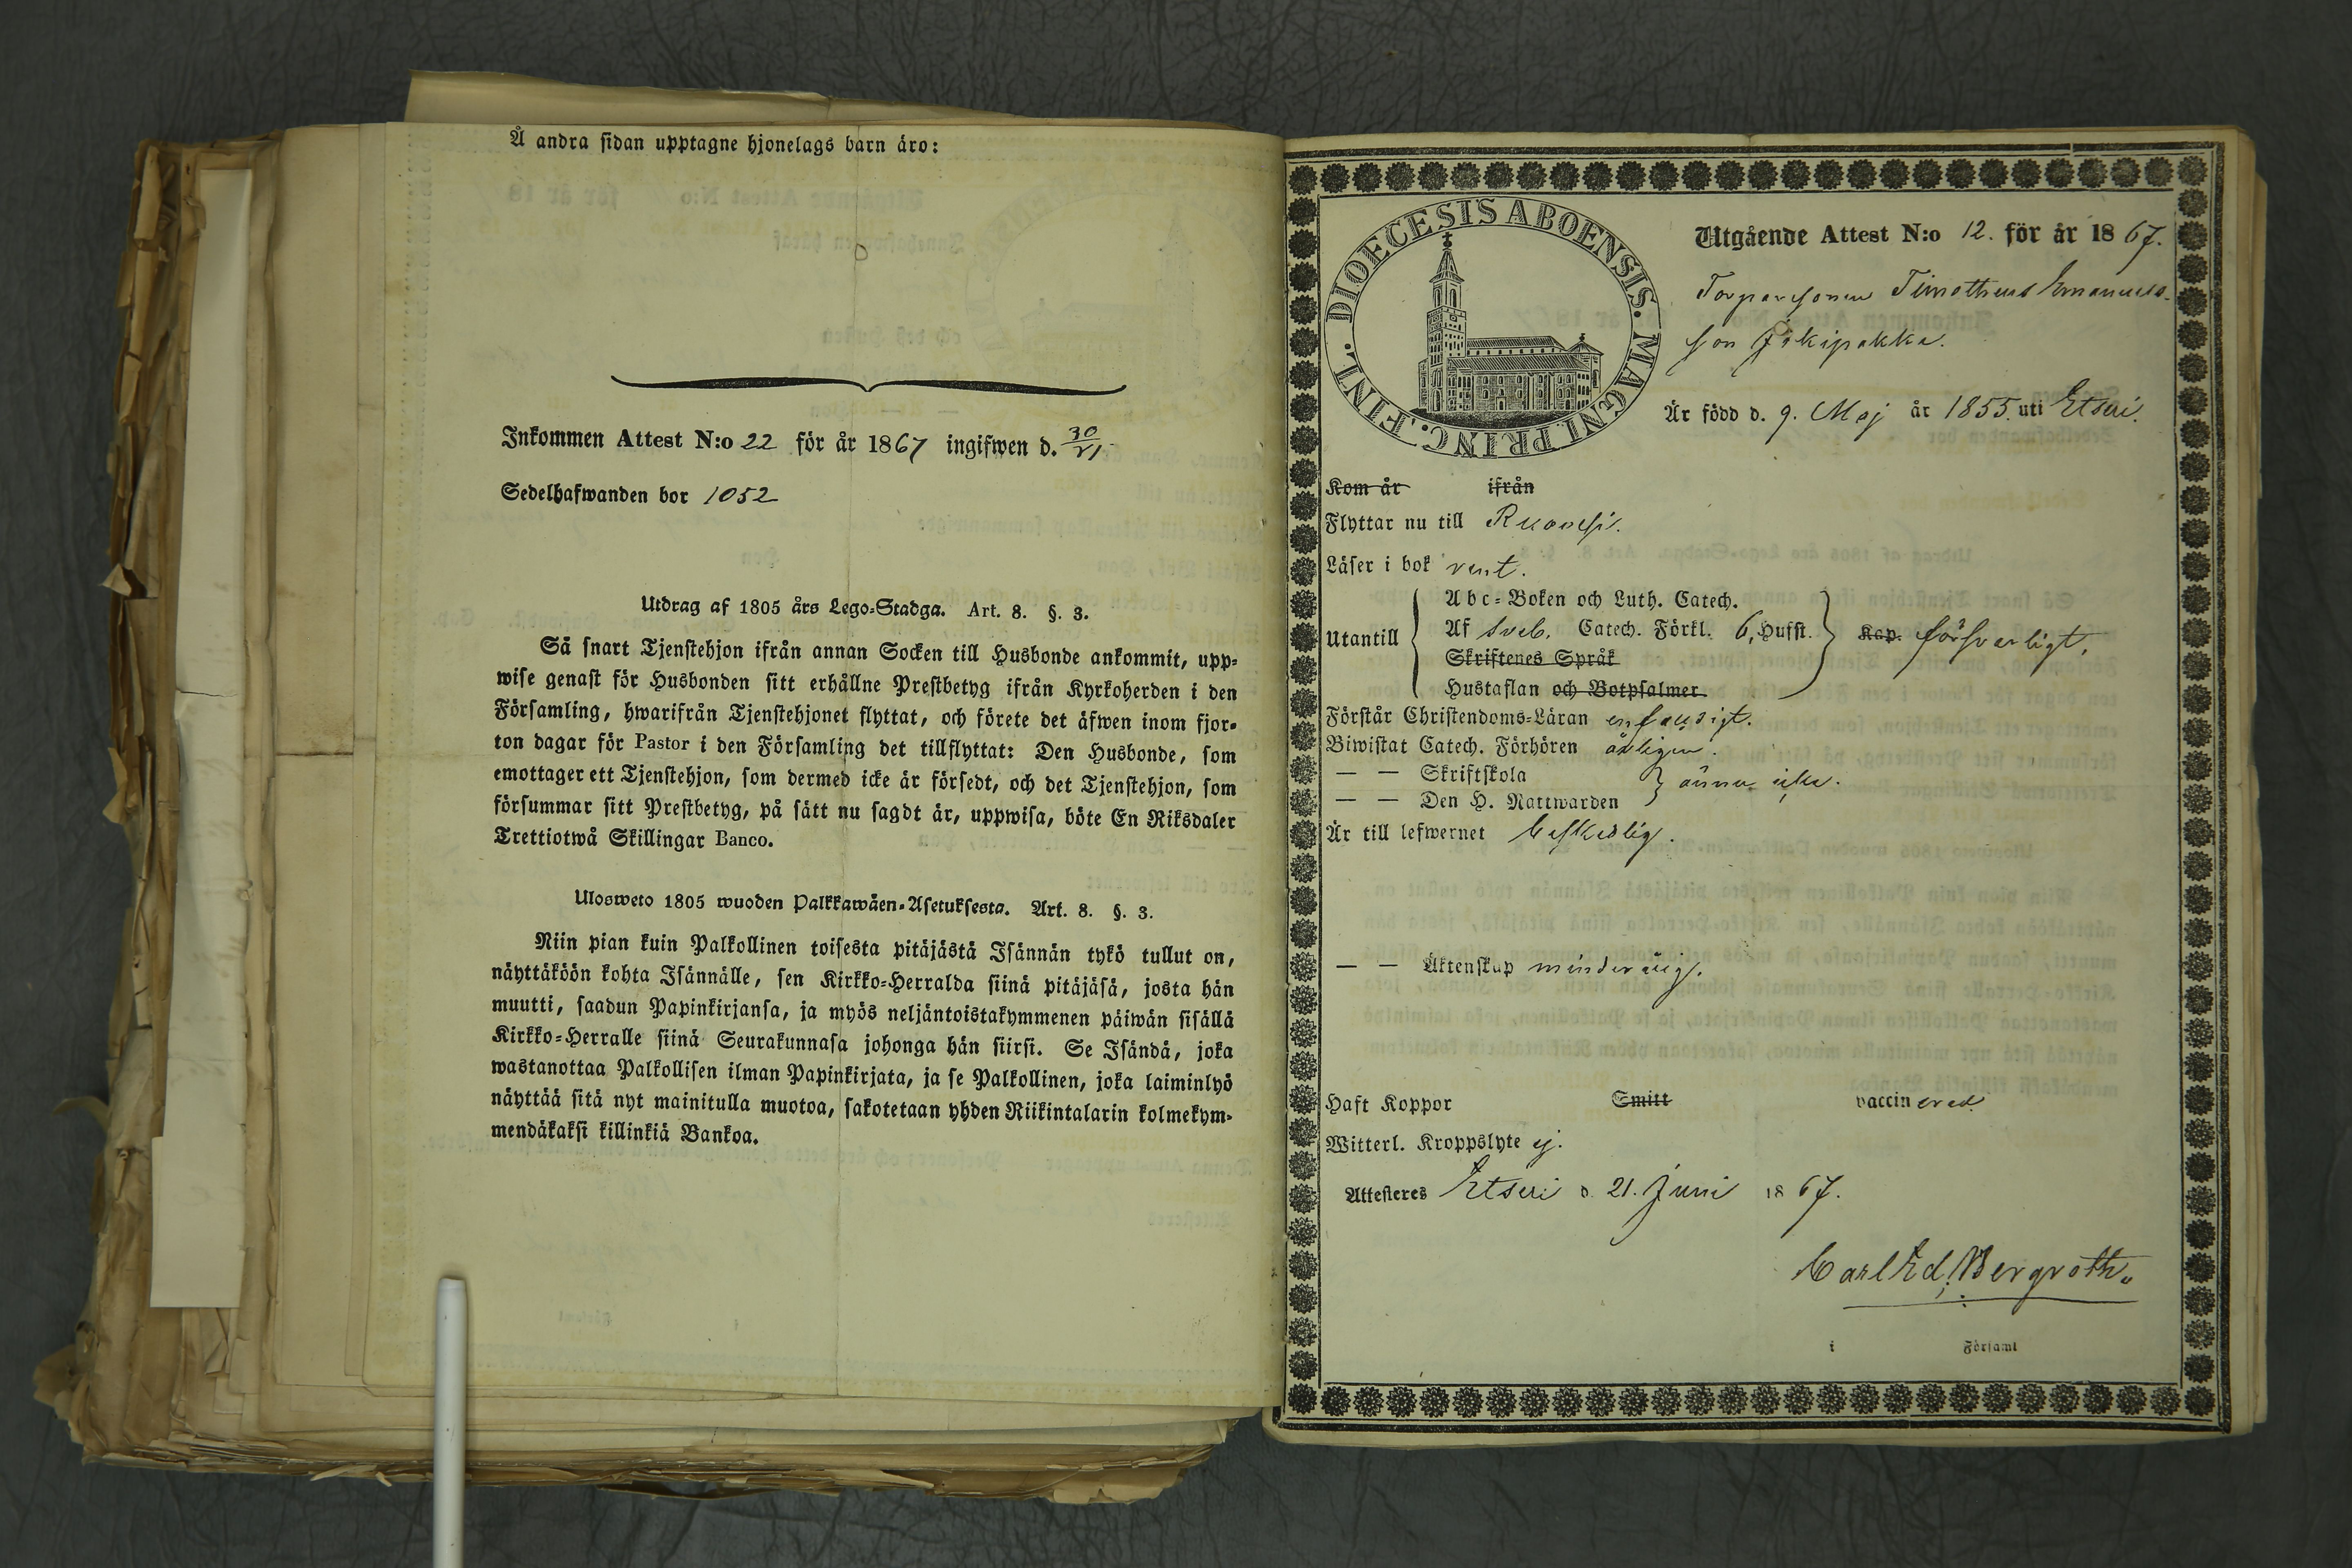 Å andra sidan upptagne hjonelags barn äro:
Inkommen Attest N:o 22 för år 1867 ingifwen d. 30/VI
Sedelhafwanden bor 1052
Utdrag af 1805 års Lego-Stadga. Art. 8. §. 3.
Så snart Tjenstehjon ifrån annan Socken till Husbonde ankommit, upp-
wise genast för Husbonden sitt erhållne Prestbetyg ifrån Kyrkoherden i den
Församling, hwarifrån Tjenstehjonet flyttat, och förete det äfwen inom fjor-
ton dagar för Pastor i den Församling det tillflyttat: Den Husbonde, som
emottager ett Tjenstehjon, som dermed icke är försedt, och det Tjenstehjon, som
försummar sitt Prestbetyg, på sätt nu sagdt är, uppwisa, böte En Riksdaler
Trettiotwå Skillingar Banco.
Ulosweto 1805 wuoden Palkkawäen-Asetuksesta. Art. 8. §. 3.
Niin pian kuin Palkollinen toisesta pitäjästä Isännän tykö tullut on,
näyttäköön kohta Isännälle, sen Kirkko-Herralda siinä pitäjäsä, josta hän
muutti, saadun Papinkirjansa, ja myös neljäntoistakymmenen päiwän sisällä
Kirkko-Herralle siinä Seurakunnasa johonga hän siirsi. Se Isändä, joka
wastanottaa Palkollisen ilman Papinkirjata, ja se Palkollinen, joka laiminlyö
näyttää sitä nyt mainitulla muotoa, sakotetaan yhden Riikintalarin kolmekym-
mendäkaksi killinkiä Bankoa.
DIOECESIS ABOENSIS. MAGNI PRINC. FINL.
Utgående Attest N:o 12. för år 1867.
Torparesonen Timotheus Emanuels-
son Jokipakka.
Är född d. 9. Maj år 1855. uti Etseri.
Kom år ifrån
Flyttar nu till Ruovesi.
Läser i bok rent.
Utantill
Abc-Boken och Luth. Catech.
Af Sveb. Catech. Förkl. 6, Hufst. Kap. försvarligt.
Skriftenes Språk
Hustaflan och Botpsalmer
Förstår Christendoms-Läran enfaldigt.
Biwistat Catech. Förhören årligen.
— — Skriftskola
— — Den H. Nattwarden ännu icke.
Är till lefwernet beskedlig.
— — Äktenskap minderårig.
Haft Koppor Smitt vaccinerad.
Witterl. Kroppslyte ej.
Attesteres Etseri d. 21. Juni 1867.
Carl Ed. Bergroth.
i Församl